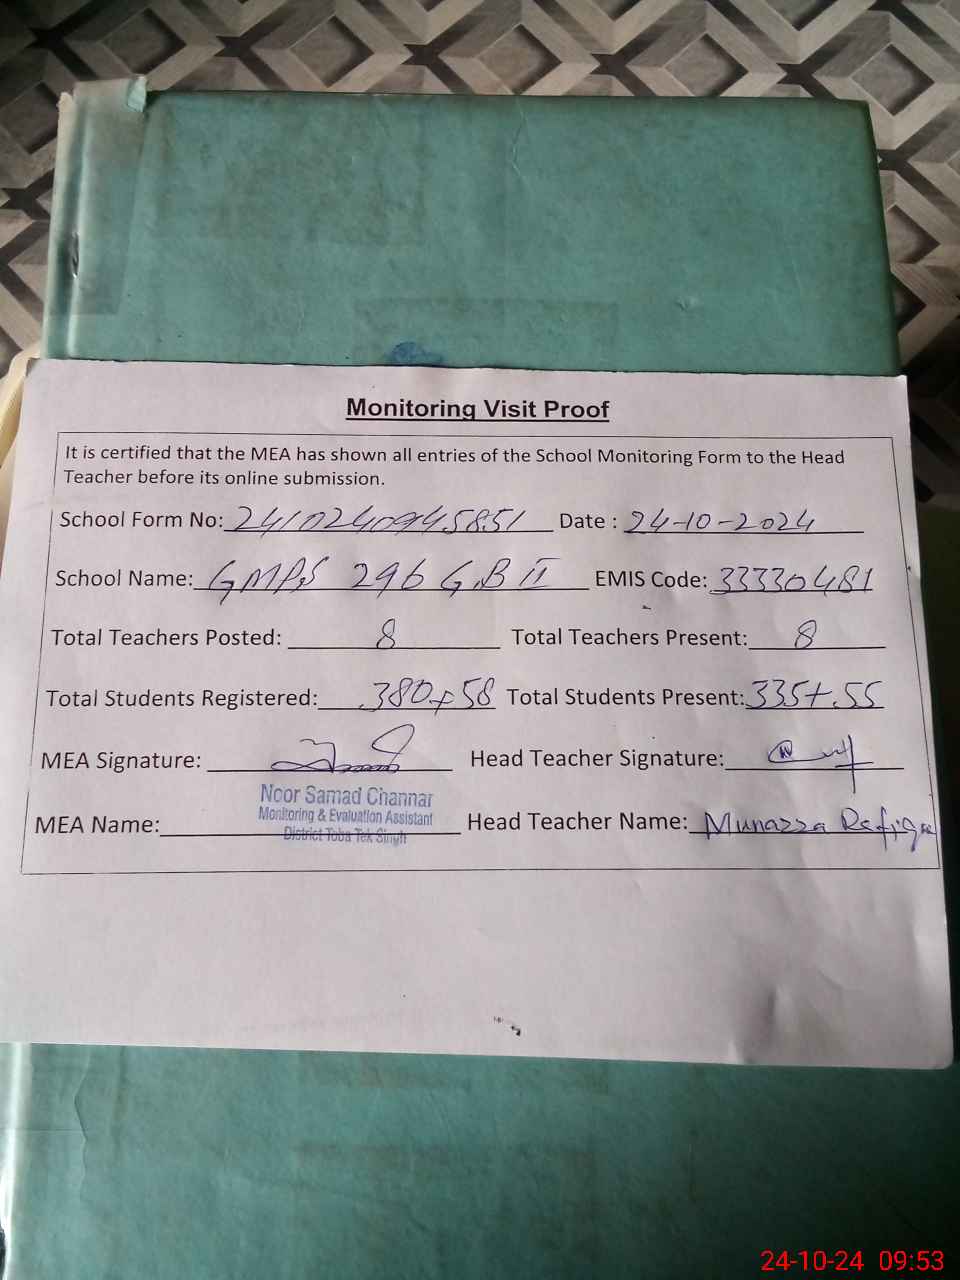 Monitoring Visit Proof
It is certified that the MEA has shown all entries of the School Monitoring Form to the Head
Teacher before its online submission.
School Form No: 241024094585​1 Date : 24-10-2024
School Name: GMPS 296 G.B II EMIS Code: 33330481
Total Teachers Posted: 8 Total Teachers Present: 8
Total Students Registered: 380+58 Total Students Present: 335+55
MEA Signature: Head Teacher Signature:
Noor Samad Channar
Monitoring & Evaluation Assistant
District Toba Tek Singh
MEA Name: Head Teacher Name: Munazza Rafiqa
24-10-24 09:53